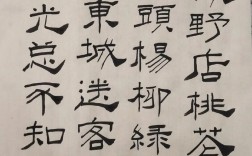 野店桃花
頭楊柳綠
東城送客
光总不知